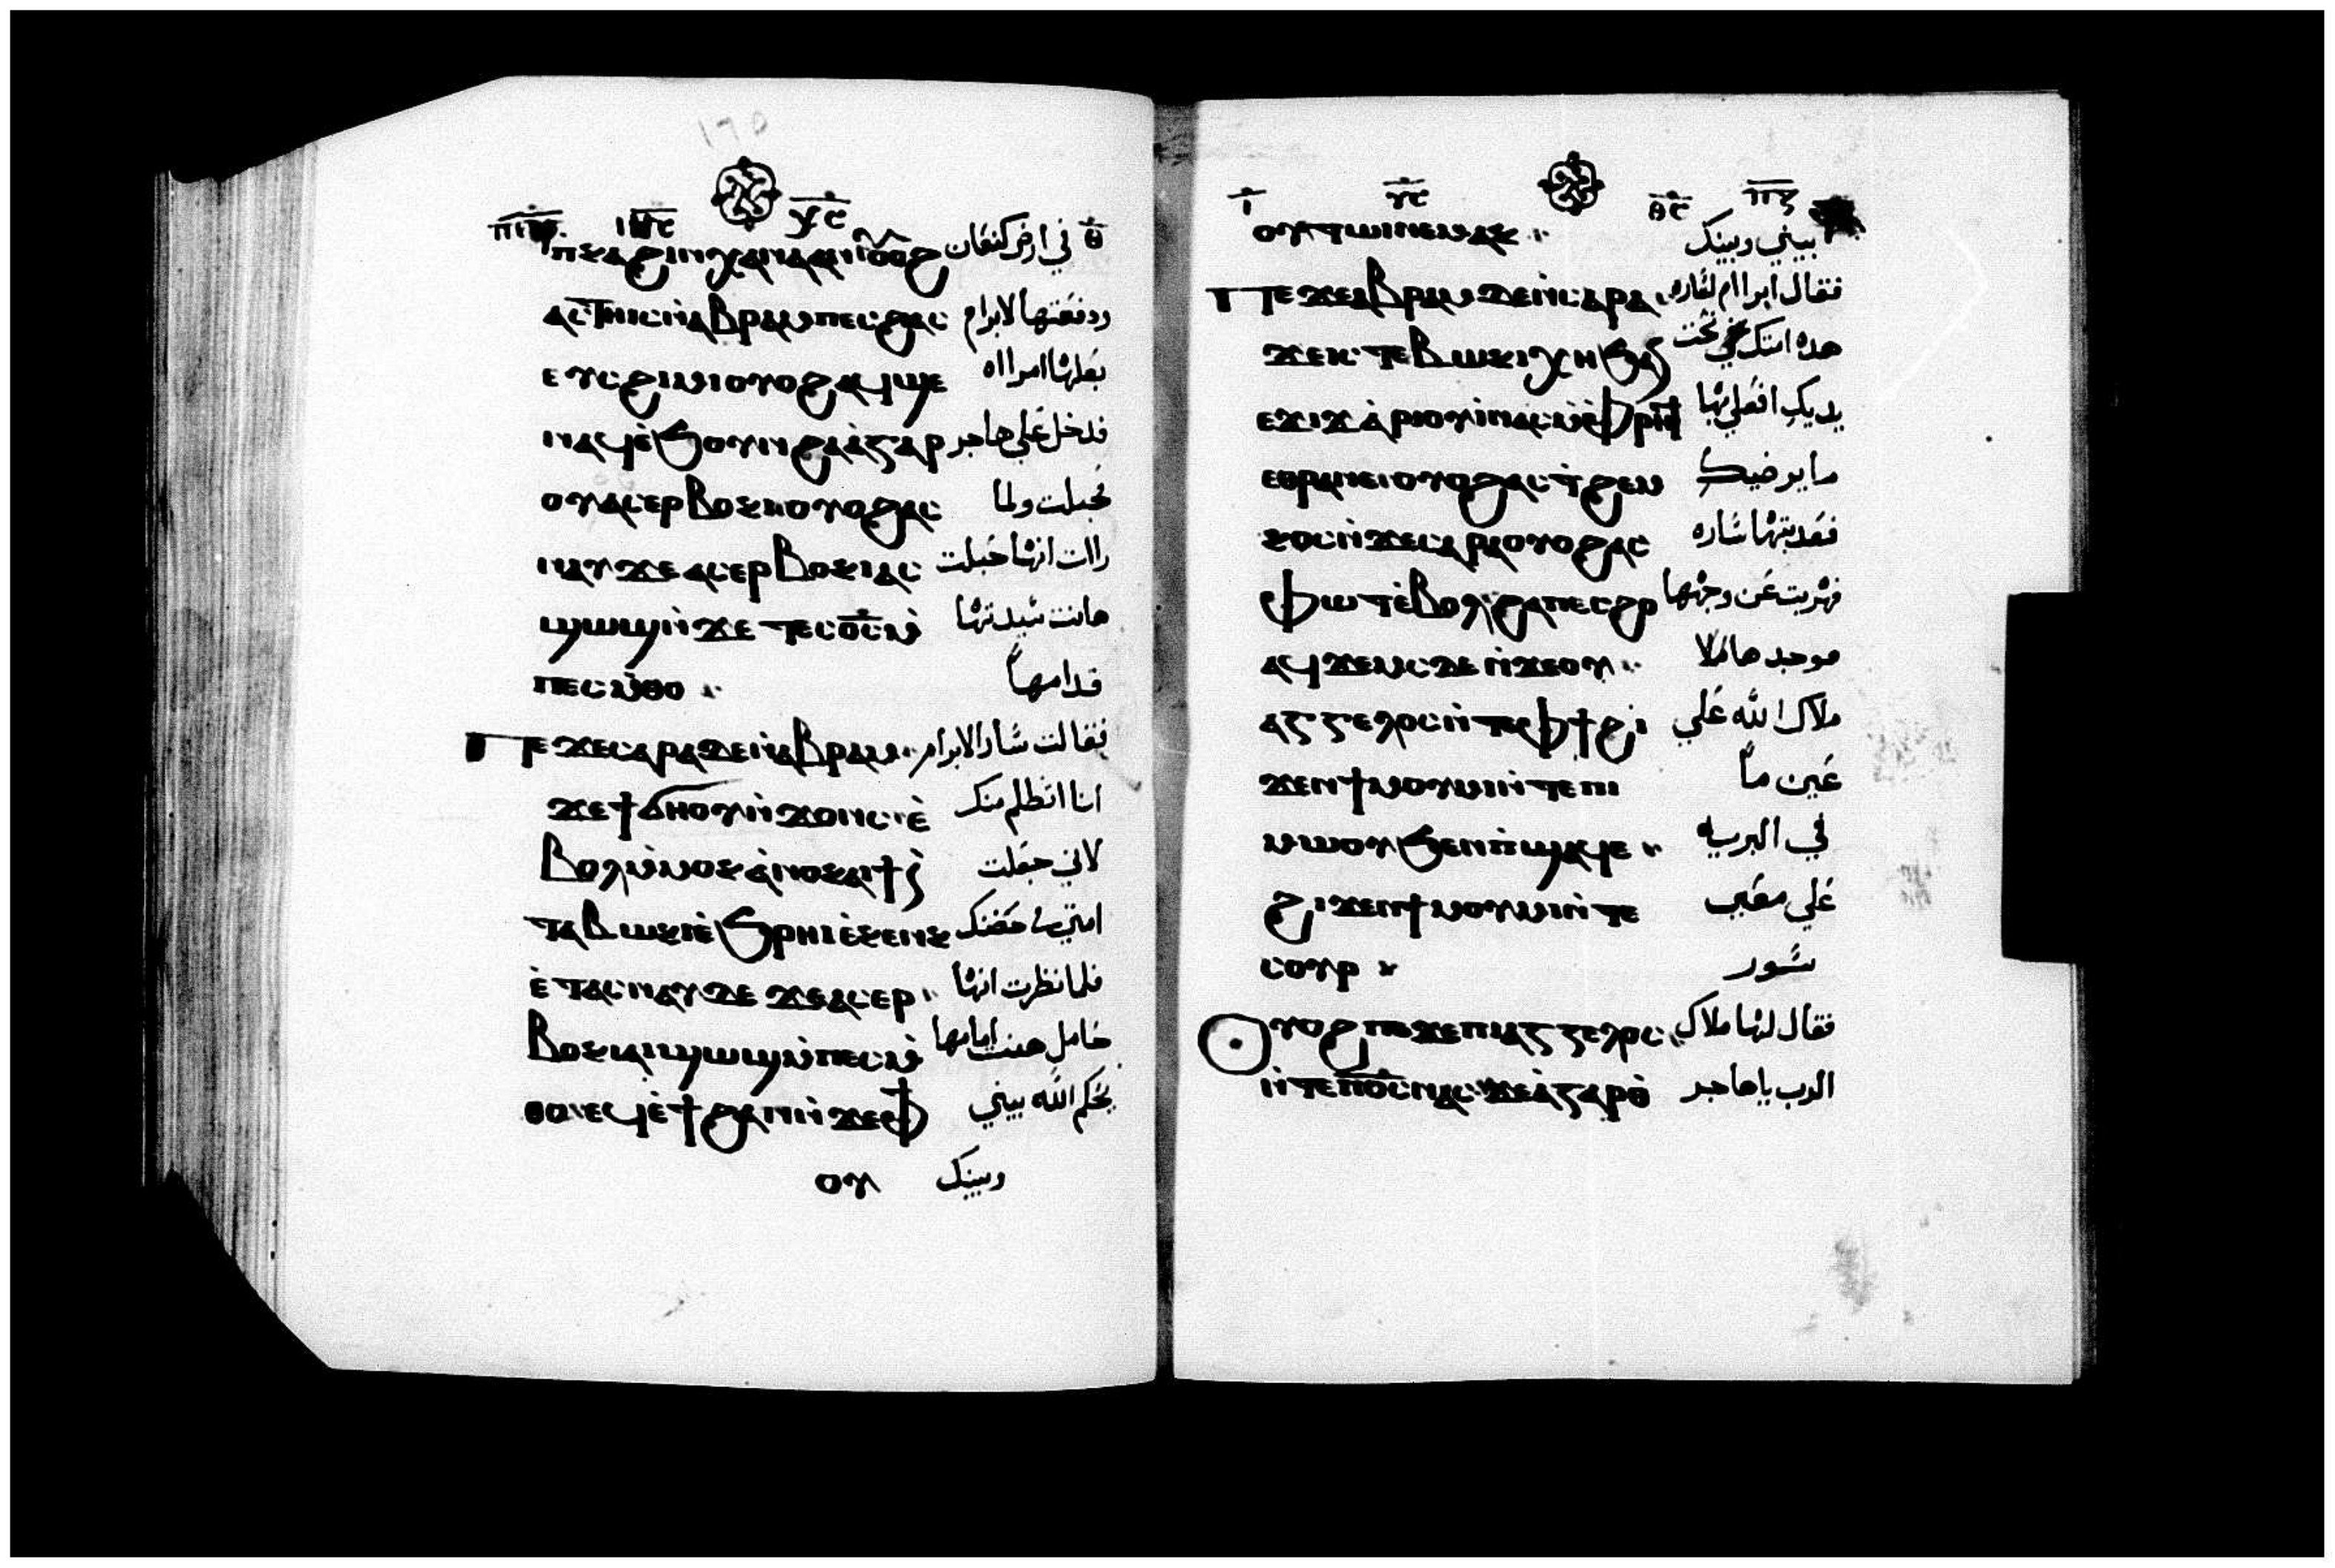 ⲓⲏⲥ ⲭⲥ
ⲡⲕⲁϩⲓⲛⲭⲁⲛⲁⲁⲛⲟⲩⲟϩ في ارض كنعان
ⲁⲥⲧⲏⲓⲥⲛ̀ⲁⲃⲣⲁⲙⲡⲉⲥϩⲁⲓ ودفعتها لابرام
ⲉⲩⲥϩⲓⲙⲓⲟⲩⲟϩⲁϥϣⲉ بعلها امرااه
ⲛⲁϥⲉ̀ϧⲟⲩⲛϩⲁⲁ̀ⲅⲁⲣ فدخل علي هاجر
ⲟⲩⲁⲥⲉⲣⲃⲟⲕⲓⲟⲩⲟϩⲁⲥ فحبلت ولما
ⲛⲁⲩϫⲉⲁⲥⲉⲣⲃⲟⲕⲓⲁⲥ راات انها حبلت
ϣⲱϣⲛ̀ϫⲉⲧⲉⲥⲟ̅ⲥ̅ⲙ̀ هانت سيدتها
ⲡⲉⲥⲙ̀ⲑⲟ قدامها
ⲡⲉϫⲉⲥⲁⲣⲁⲇⲉⲛ̀ⲁⲃⲣⲁⲙ فقالت سارا لابرام
ϫⲉϯϭⲏⲟⲩⲛ̀ϫⲟⲛⲥⲉ̀ انا انظلم منك
ⲃⲟⲗⲙ̀ⲙⲟⲕⲁ̀ⲛⲟⲕⲁⲓϯ لاني جعلت
ⲧⲁⲃⲱⲕⲓⲉ̀ϧⲣⲏⲓⲉ̀ⲕⲉⲛⲕ امتي حضنك
ⲉ̀ⲧⲁⲥⲛⲁⲩⲇⲉϫⲉⲁⲥⲉⲣ فلما نظرت انها
ⲃⲟⲕⲓⲁⲓϣⲱϣⲙ̀ⲡⲉⲥⲙ̀ حامل هنت امامها
ⲑⲟⲉϥⲉ̀ϯϩⲁⲡⲛ̀ϫⲉⲫϯ يحكم الله بيني
ⲟⲩ وبينك
ⲩⲥ ⲑⲥ
ⲟⲩⲧⲱⲓⲛⲉⲙⲁⲕ بيني وبينك
ⲡⲉϫⲉⲁⲃⲣⲁⲙⲇⲉⲛ̀ⲥⲁⲣⲁ فقال ابراام لساره
ϫⲉⲓⲥⲧⲉⲃⲱⲕⲓⲭⲏϧⲁ هده امتك تحت
ⲉϫⲓϫⲁ̀ⲣⲓⲟⲩⲓ̀ⲛⲁⲥⲙ̀ⲫⲣⲏϯ يديك افعلي بها
ⲉⲑⲣⲁⲛⲉⲓⲟⲩⲟϩⲁⲥϯϩⲉⲙ ما يرضيك
ⲕⲟⲥⲛ̀ϫⲉⲥⲁⲣⲁⲟⲩⲟϩⲁⲥ فعدبتها ساره
ⲫⲱⲧⲉ̀ⲃⲟⲗϩⲁⲡⲉⲥϩⲟ فهربت عن وجهها
ⲁϥϫⲉⲙⲥⲇⲉⲛ̀ϫⲉⲟⲩ فوجدها ملا
ⲁⲅⲅⲉⲗⲟⲥⲛ̀ⲧⲉⲫϯϩⲓ ملاك الله علي
ϫⲉⲛϯⲙⲟⲩⲙⲓⲛ̀ⲧⲉⲡⲓ عين ما
ⲙⲱⲟⲩϧⲉⲛⲡ̀ϣⲁϥⲉ في البريه
ϩⲓϫⲉⲛϯⲙⲟⲩⲙⲓⲛ̀ⲧⲉ علي معين
ⲥⲟⲩⲣ سور
ⲟⲩⲟϩⲡⲉϫⲉⲡⲓⲁⲅⲅⲉⲗⲟⲥ فقال لها ملاك
ⲛ̀ⲧⲉⲡ̅ⲟ̅ⲥ̅ⲛⲁⲥϫⲉⲁ̀ⲅⲁⲣⲑ الرب ياهاجر